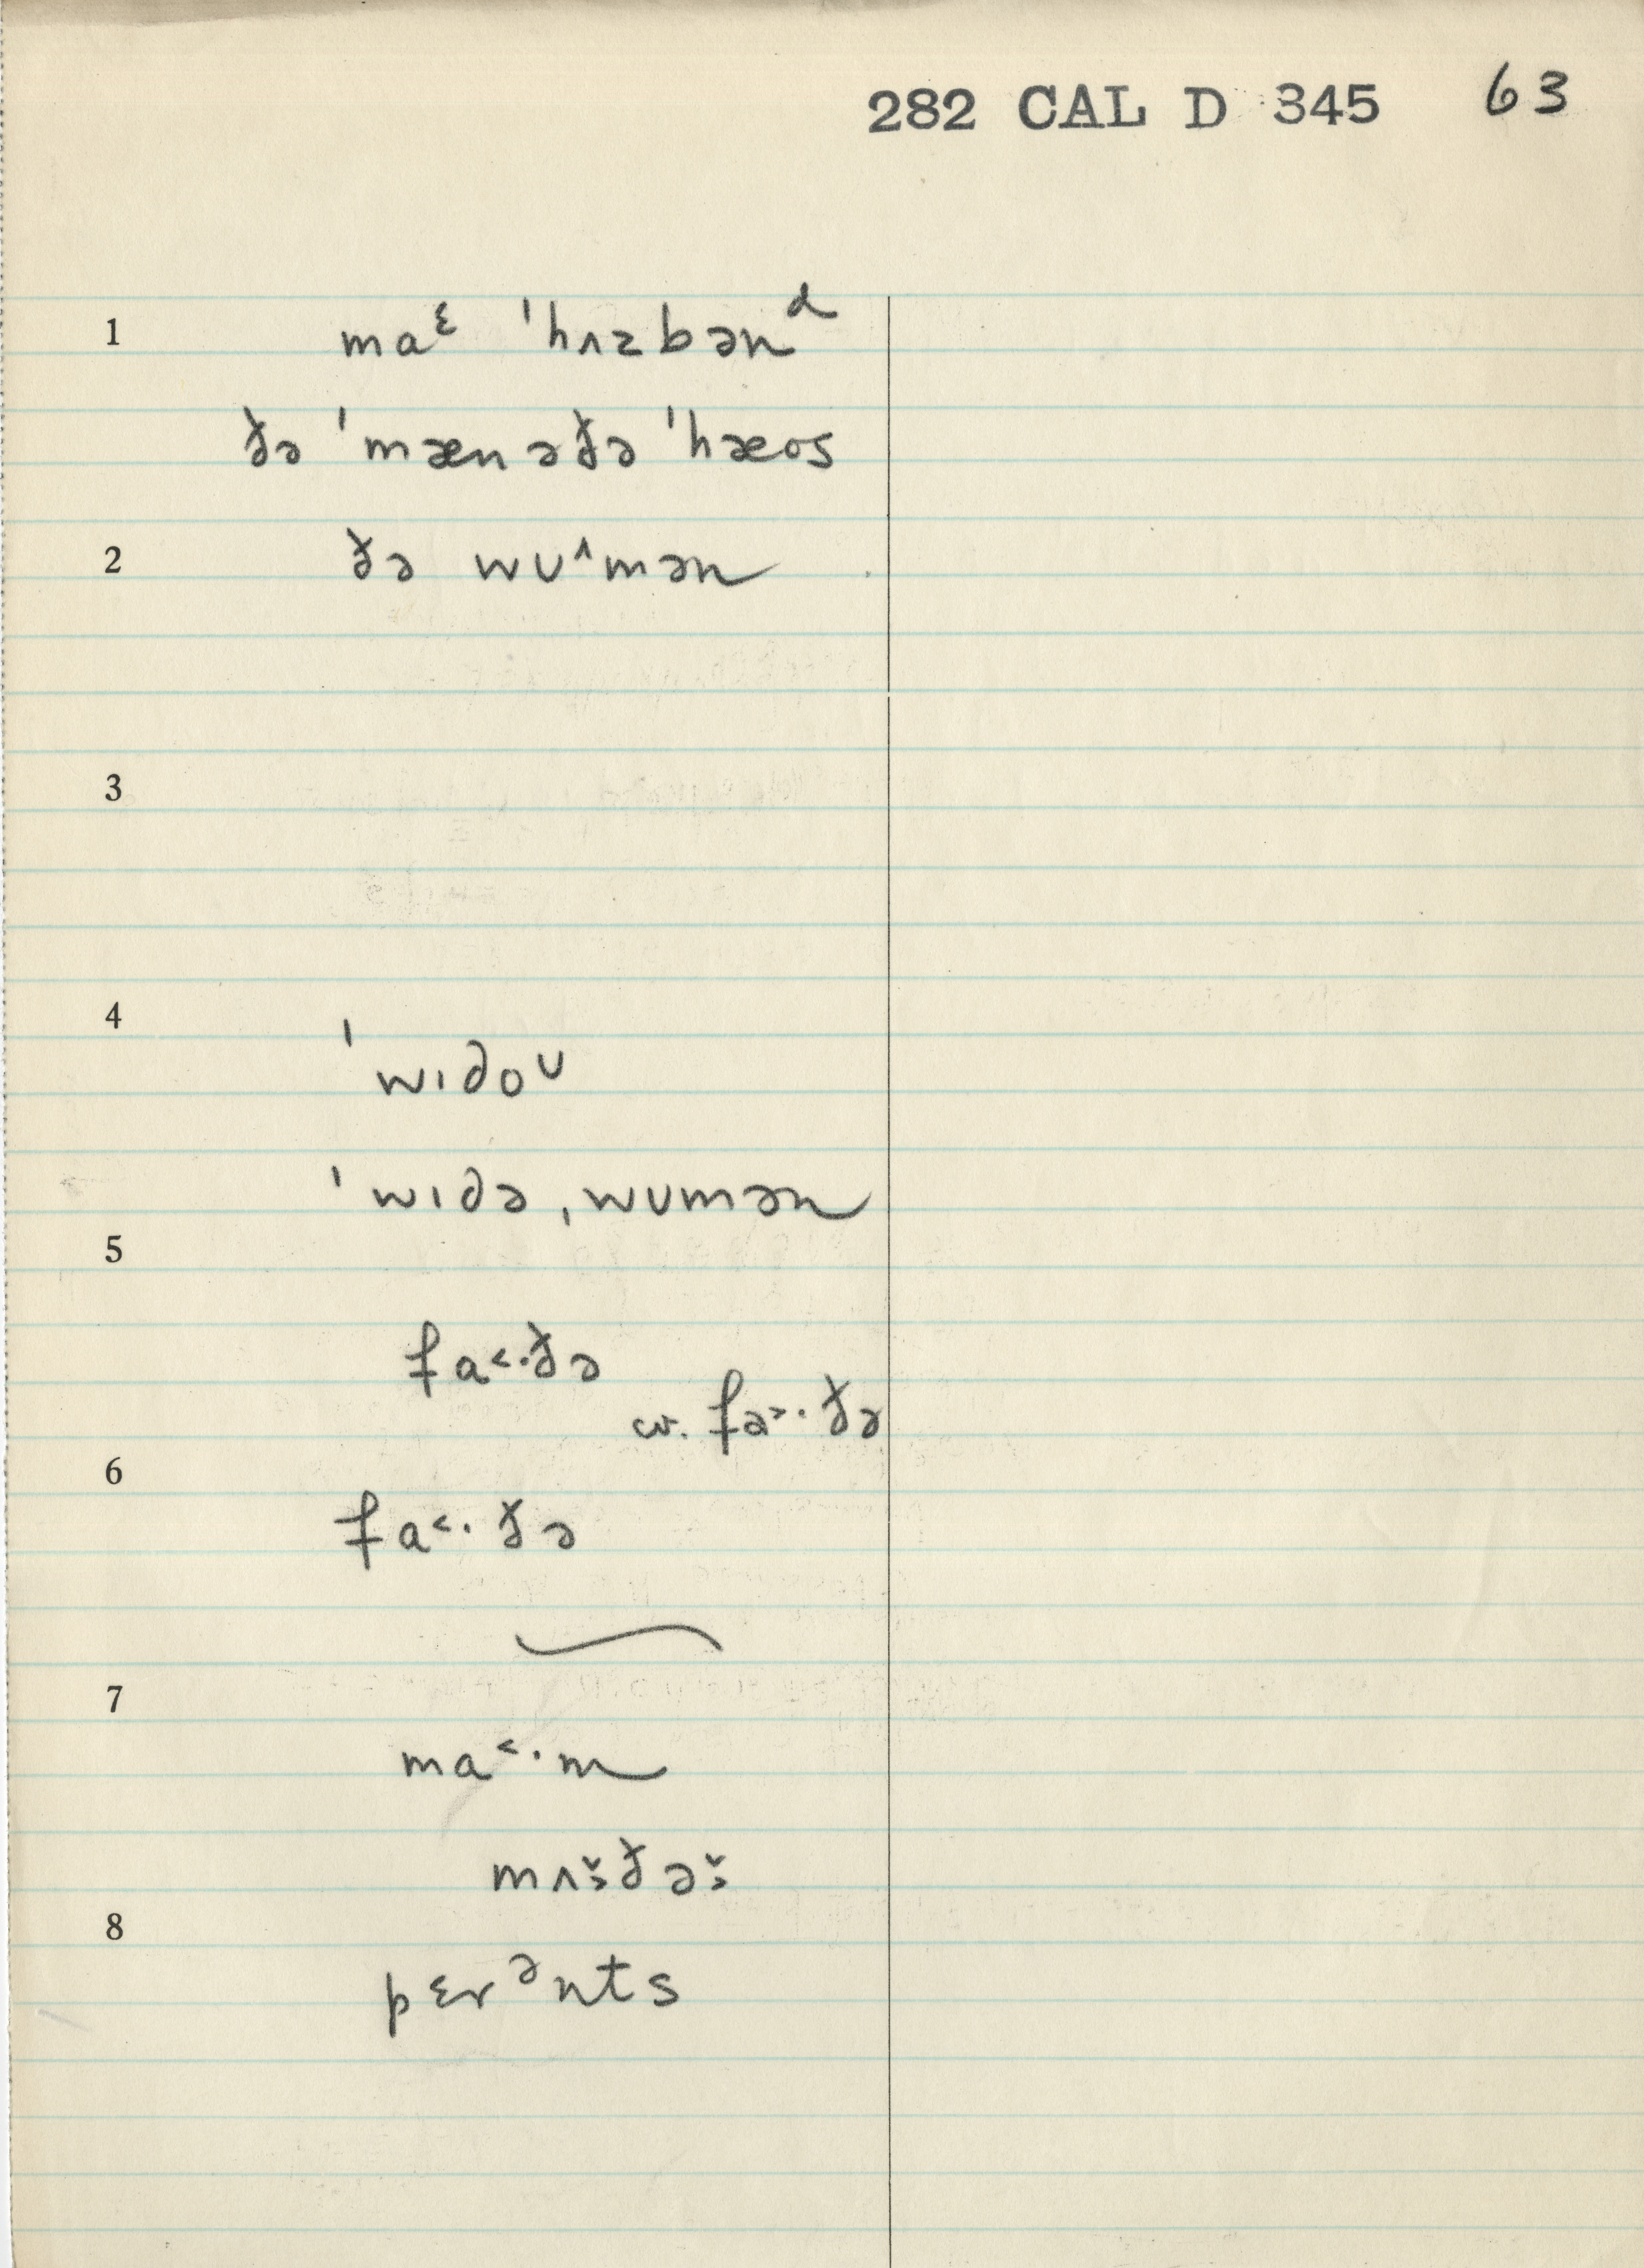 282 CAL D 345 63
1 maᵋ ˈhʌzbənᵈ
ðə ˈmæn ə ðə ˈhæos
2 ðə wʊ˄mən
3
4
ˈwɪdoᴜ
ˈwɪdə ˌwʊmən
5
fa˂·ðə
w. fa˃·ðə
6
fa˂·ðə
7
ma˂·m
mʌš̬ðəš̬
8
pɛrᵊnts